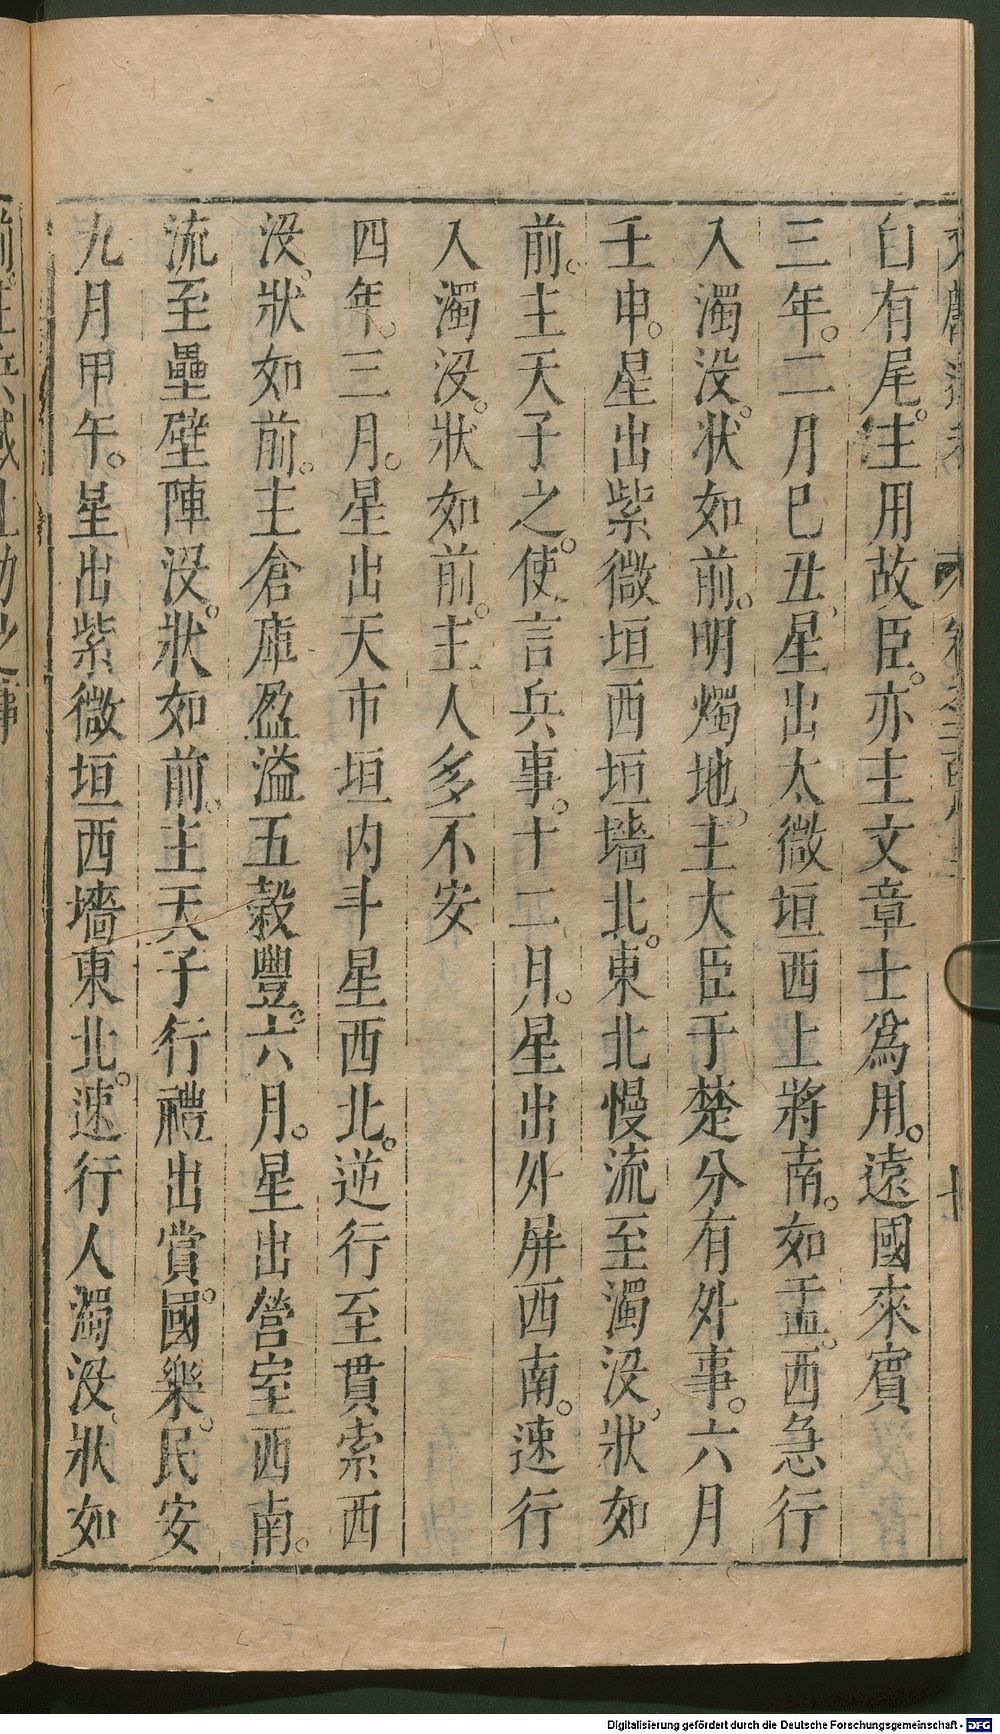 白有尾。主用故臣。亦主文章士爲用。遠國來賓
三年。二月巳丑。星出太微垣西上將南。如盂。西急行
入濁没。状如前。明燭地。主大臣于楚分有外事。六月
壬申。星出紫微垣西垣墻北。東北慢流至濁没。狀如
前。主天子之。使言兵事。十二月。星出外屏西南。速行
入濁没。狀如前。主人多不安
四年。三月。星出天市垣内斗星西北。逆行至貫索西
没。狀如前。主倉庫盈溢五穀豐。六月。星出營室西南。
流至壘壁陣没。狀如前。主天子行禮出賞。國樂。民安
九月甲午。星出紫微垣西墻東北。速行人濁没。狀如